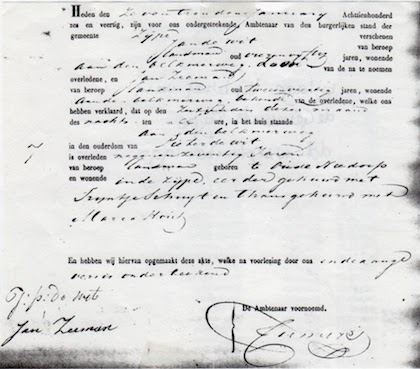 Heden den January Achttienhonderd
zes en veertig, zijn voor ons ondergeteekende, Ambtenaar van den burgerlijken stand der
gemeente Zype verschenen
Jan de Wit van beroep
landman oud jaren, wonende
aan den belkmerweg, van de na te noemen
overledene, en Jan Zeeman
van beroep landman oud jaren, wonende
aan den belkmerweg bekende van de overledene, welke ons
hebben verklaard, dat op den dezer maand
des nachts ten ure, in het huis staande
aan den belkmerweg
in den ouderdom van Pieter de Wit
is overleden negen en zeventig Jaren
van beroep landman geboren te Oude Niedorp
en wonende in de Zype, eerder gehuwd met
Tryntje Schuyt en thans gehuwd met
Maria
En hebben wij hiervan opgemaakt deze akte, welke na voorlezing door ons en de aange
onderteekend
De Ambtenaar voornoemd.
de Wit
Jan Zeeman